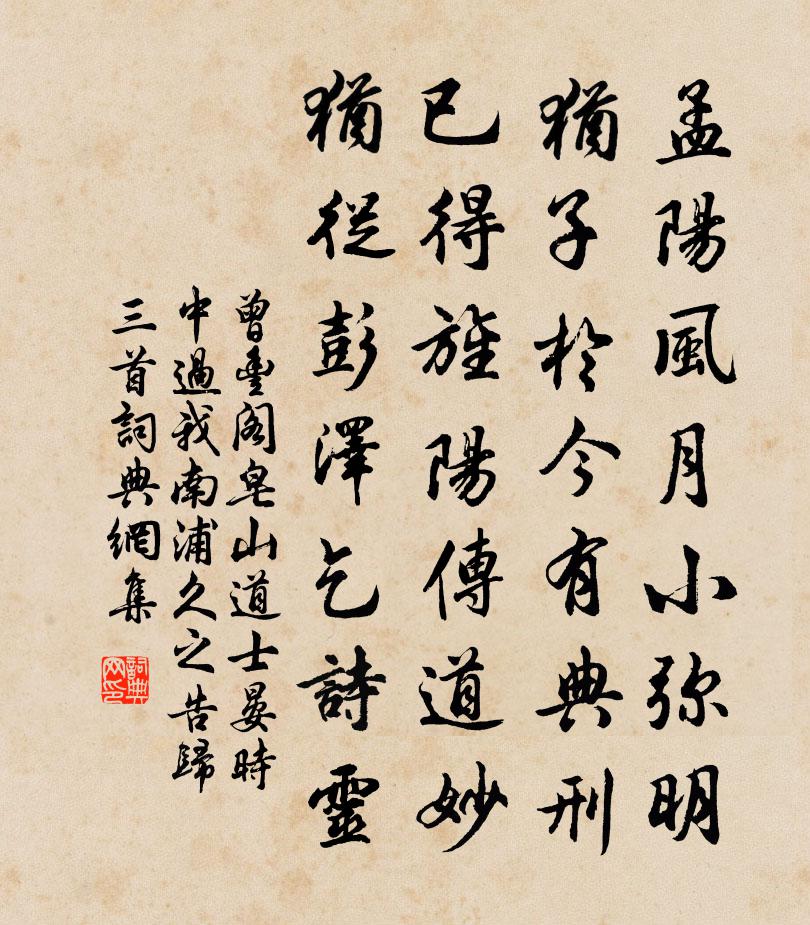 孟陽風月小弥明
猶子於今有典刑
已得旌陽傳道妙
猶從彭澤乞詩靈
曾豐閣皂山道士晏時
中過我南浦久之告歸
三首詞典網集
詞典网印